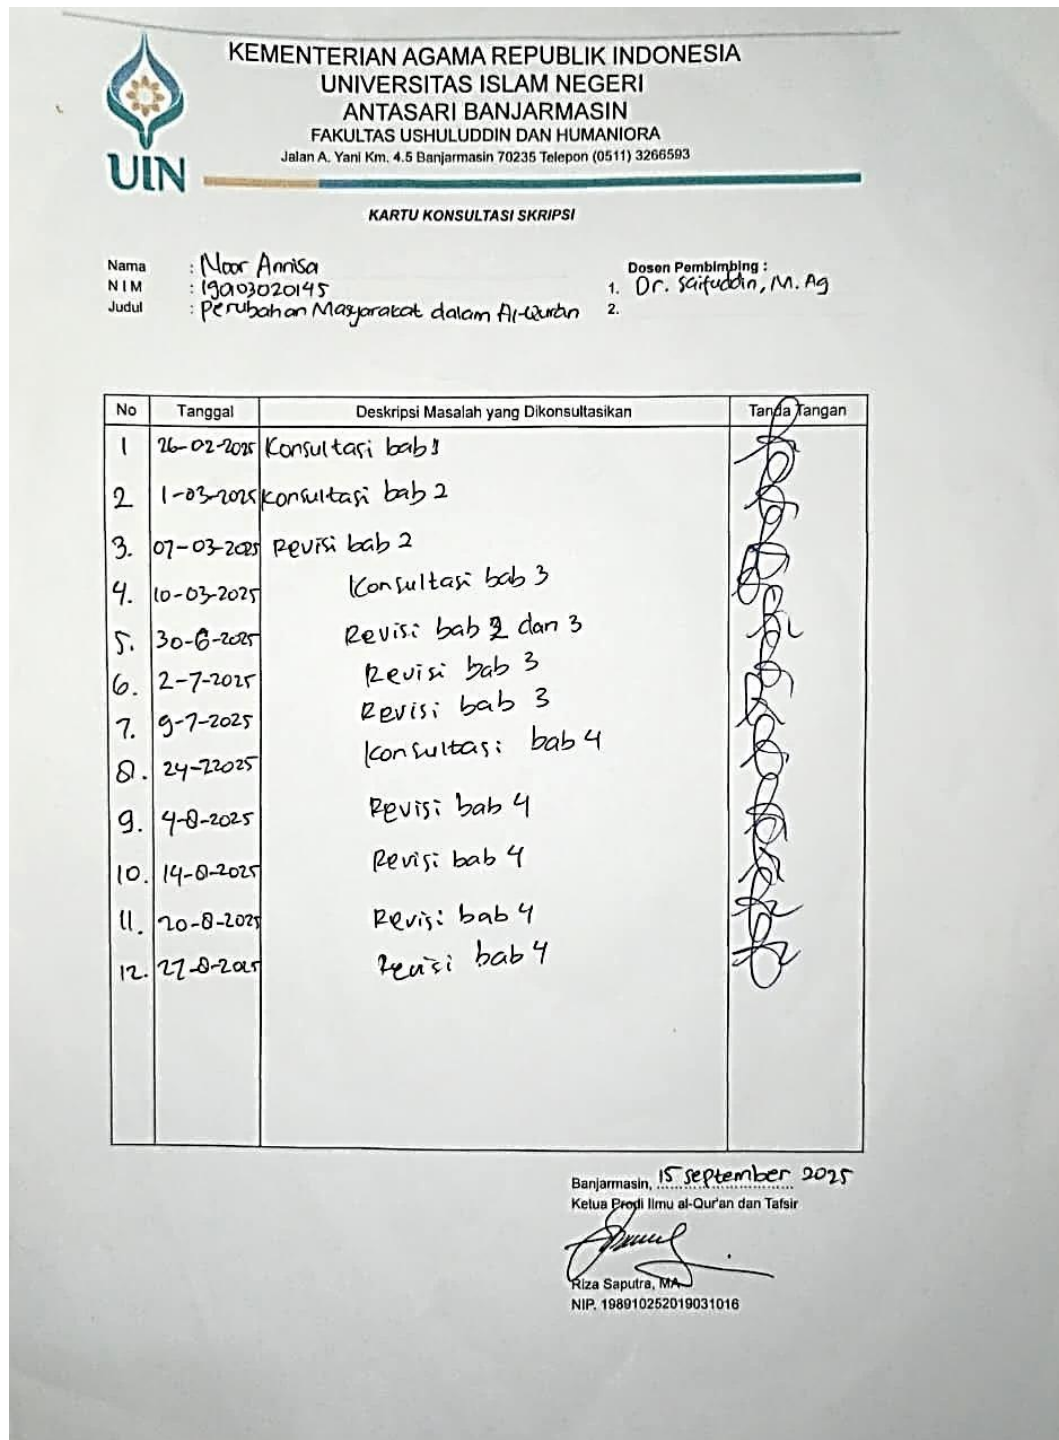 KEMENTERIAN AGAMA REPUBLIK INDONESIA
UNIVERSITAS ISLAM NEGERI
ANTASARI BANJARMASIN
FAKULTAS USHULUDDIN DAN HUMANIORA
Jalan A. Yani Km. 4.5 Banjarmasin 70235 Telepon (0511) 3266593
UIN
KARTU KONSULTASI SKRIPSI
Nama : Noor Annisa
NIM : 190103020145
Judul : Perubahan Masyarakat dalam Al-Quran
Dosen Pembimbing :
1. Dr. Saifuddin, M. Ag
2.
No Tanggal Deskripsi Masalah yang Dikonsultasikan Tanda Tangan
1 26-02-2025 Konsultasi bab 1
2 1-03-2025 Konsultasi bab 2
3. 07-03-2025 Revisi bab 2
4. 10-03-2025 Konsultasi bab 3
5. 30-6-2025 Revisi bab 2 dan 3
6. 2-7-2025 Revisi bab 3
7. 9-7-2025 Revisi bab 3
8. 24-72025 Konsultasi bab 4
9. 4-8-2025 Revisi bab 4
10. 14-8-2025 Revisi bab 4
11. 20-8-2025 Revisi bab 4
12. 27-8-2025 Revisi bab 4
Banjarmasin, 15 September 2025
Ketua Prodi Ilmu al-Qur'an dan Tafsir
Riza Saputra, MA
NIP. 198910252019031016